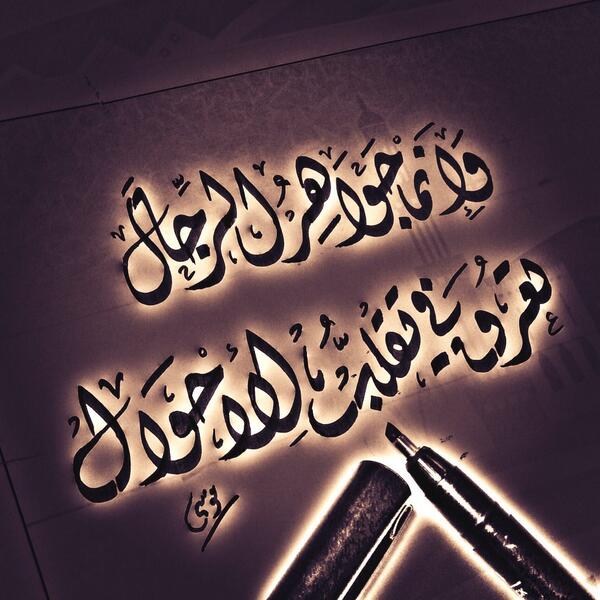 وَإِنَّمَا جَوَاهِرُ الرِّجَالِ
تُعْرَفُ فِي تَقَلُّبِ الأَحْوَالِ